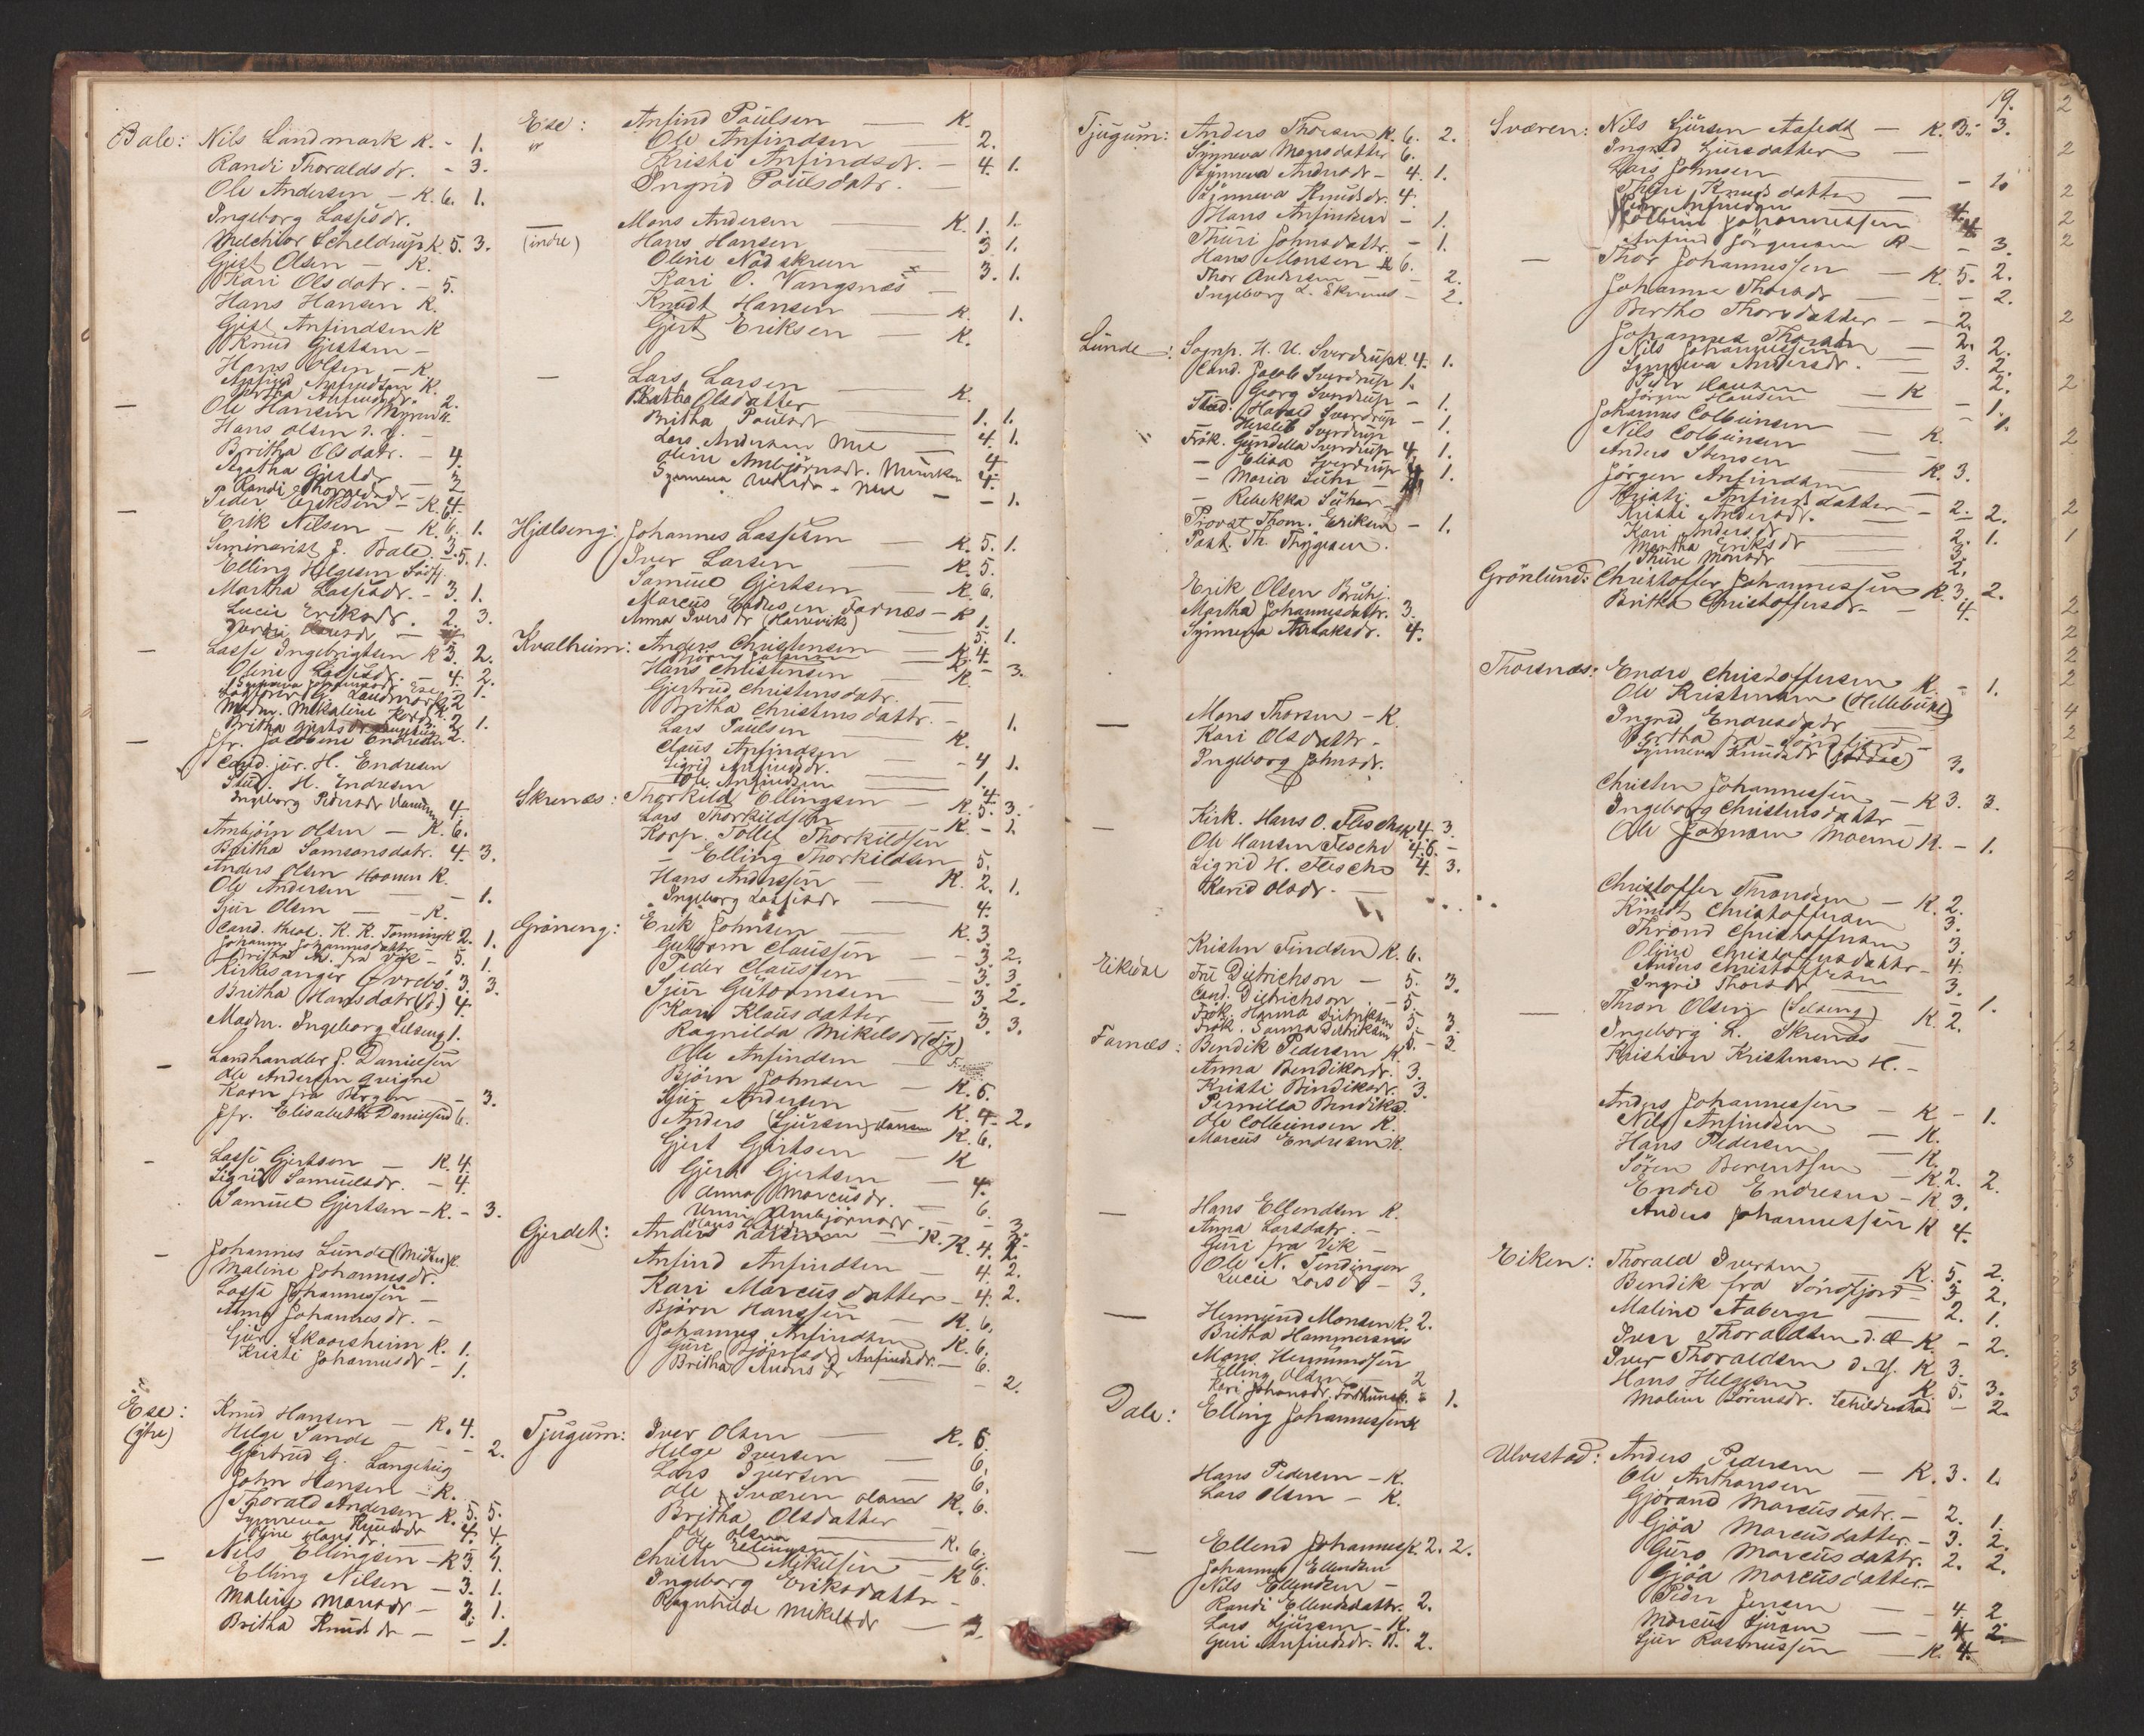 Bale: Nils Landmark K. - 1.
Randi Thoraldsdr. - 3.
Ole Andersen - K. 6. 1.
Ingeborg Lassesdr.
Melchior Scheldrup K 5. 3.
Gjert Olsen - K.
Kari Olsdatr. - 5.
Hans Hansen K.
Gjert Anfindsen K
Knud Gjertsen -
Hans Olsen - K.
Anfind Anfindsen K.
Anfindsdr. 2.
Ole Hansen
Hans Olsen d. y. -
Britha Olsdatr. - 4
Agatha Gjertsdr - 4.
Randi Thoraldsdr 3
Peder Eriksen - K. 4.
Erik Nilsen - K. 6. 1.
Seminarist J. Bale. 3.
Elling Helgesen 5. 1.
Martha Lassesdr. - 3. 1.
Lucie Eriksdr. 2. 3.
Lasse Ingebrigtsen K 3. 2.
Oline Lassesdr. - 4. 2.
G. Landmark 1.
Madm. Mikaline 2
Britha Gjertsdr 2 1.
Jfr. Jacobine Endresen 2.
Cand. jur. H. Endresen
Stud. H. Endresen
Ingeborg Pedersdr 4.
Ambjörn Olsen - K. 6.
Britha Samsonsdatr. 4. 3.
Anders Olsen K.
Ole Andersen - - 1.
Sjur Olsen - K.
Cand. theol. K. K. Tonning K 2. 1.
Johanne Johannesdattr
fra Vik - 5. 1.
Kirkesanger Övrebö. 3. 3.
Britha Hansdatr 4.
Madm. Ingeborg Selseng 1.
Landhandler J. Danielsen
Ole Andersen
Karn fra Bergen - 3.
Jfr. Elisabeth Danielsen 6.
Lasse Gjertsen - K. 4.
Sigrid Samuelsdr. - 4.
Samuel Gjertsen - K. - 3.
Johannes Lunde K.
Maline Johannesdr.
Lasse Johannessen -
Anna Johannesdr. -
Sjur Skaarsheim K. 1.
Kristi Johannesdr - 1.
Ese: (ytre) Knud Hansen - K. 4.
Helge Sande - 2.
Gjertrud G. Langehaug
John Hansen - K.
Thorald Andersen K. 5. 5.
Synneva Knudsdr 4. 4.
Oline Hansdr.
Nils Ellingsen - K 3. 1.
Elling Nilsen - 3. 1.
Maline Monsdr - 2. 1.
Britha Knudsdr - - 1.
Ese: Anfind Paulsen - K.
Ole Anfindsen - 2.
Kristi Anfindsdr. - 4. 1.
Ingrid Paulsdatr. -
(indre) Mons Andersen - K. 1. 1.
Hans Hansen 3 1.
Oline Nödskrun
Kari O. Vangsnæs 3. 1.
Knudt Hansen - K. 1.
Gjert Eriksen - K.
Lars Larsen - K.
Olsdatter
Britha Paulsdr 1. 1.
Lars Andersen 4. 1.
Oline Ambjörnsdr. 4
Synneva 4.
- 1.
Hjalseng: Johannes Lassesen - K. 5. 1.
Iver Larsen - K. 5.
Samuel Gjertsen - K. 6.
Marcus Endresen Farnæs - K
Anna Iversdr 1.
Kvalheim: Anders Christensen - 5. 1.
K. 4.
Hans Christensen - K. - 3.
Gjertrud Christensdatr.
Britha Christensdattr. -
Lars Paulsen - K. 1.
Claus Anfindsen
Sigrid Anfindsdr. - 4 1.
Ole Anfindsen 1.
Skrenæs: Thorkild Ellingsen - K. 5. 3.
Lars Thorkildsen K. - 1.
Korp. Tollef Thorkildsen
- Elling Thorkildsen 5.
Hans Anderssen - K. 2. 1.
Ingeborg Lassesdr - 4.
Gröneng: Erik Johnsen - K. 3.
Guttorm Claussen - 3 2.
Peder Claussen - 3. 3.
Sjur Gutormsen - 3 2.
Kari Klausdatter - 3. 3.
Ragnilda Mikelsdr
Ole Anfindsen -
Björn Johnsen - K. 5.
Sjur Andersen K. 4. 2.
Anders Sjursen K. 6.
Gjert Gjertsen - K
Gjert Gjertsen - 4.
Anna Marcusdr. - 6.
Unni Ambjörnsdr. - 3.
Gjerdet: Anders K. 4. 2.
Anfind Anfindsen 4 2.
Kari Marcusdatter - 4. 2.
Björn Hanssen K. 6.
Johannes Anfindsen K. 6.
Guri Björnsdr 6.
Britha Andersdr - 2.
Tjugum: Iver Olsen - K. 5.
Helge Iversen - 6.
Lars Iversen - 6.
Ole Sværen K. 6.
Britha Olsdatter
Ole Olsen
Ole Ellingsen K. 6.
Christen Mikelsen - K 6.
Ingeborg Eriksdatter -
Ragnhilde Mikelsdr - 3.
19.
Tjugum: Anders Thorsen K. 6. 2.
Synneva Monsdatter 6.
Synneva Andersdr - 4. 1.
Synneva Knudsdr. 4.
Hans Anfindsen - 1.
Thuri Johnsdattr. - 1.
Hans Monsen K 6.
Thor Andersen - 2.
Ingeborg L. Skrenæs - 2.
Lunde: Sognp. H. U. Sverdrup K. 4. 1.
Cand. Jacob Sverdrup 1.
Georg Sverdrup - 1.
Stud. Harald Sverdrup - 1.
- Hersleb Sverdrup
Frök. Gundella Sverdrup 4 1.
- Elisa Sverdrup 4 1.
- Maria Suhr
- Rebekka Suhr
Provst Thom. Eriksen - 1.
Past. Th. Thygesen.
Erik Olsen
Martha Johannesdattr. 3.
Synneva Aslaksdr. 4.
Mons Thorsen - K.
Kari Olsdattr -
Ingeborg Johnsdr.
Kirk. Hans O. Flesche K 4. 3.
Ole Hansen Flesche 4. 6. -
Sigrid H. Flesche 4. 3.
Karid Olsdr. -
Kristen Findsen K. 6.
Eikdal Fru Dietrichson - 5. 3.
Cand. Dietrichson - 5
Frök. Hanna Dietrichson 5. 3.
Frök. Sanna Dietrichson 5. - 3
Farnæs: Bendik Pedersen K.
Anna Bendiksdr. 3.
Kristi Bendiksdr. 3.
Pernilla Bendiksd.
Ole Colbeinsen K.
Marcus Endresen K.
Hans Ellendsen K.
Anna Larsdatr. -
Guri fra Vik -
Ole N. Tendingen
Lucie Larsdr - 3.
Hermund Monsen K. 2.
Britha Hammersnæs
Mons Hermundsen
Elling Olsen 2
Kari Johansdr. 1.
Dale: Elling Johannessen K
Hans Pedersen - K.
Lars Olsen - K.
Ellend Johannes. K. 2. 2.
Johannes Ellendsen
Nils Ellendsen -
Randi Ellendsdattr. 2.
Lars Sjursen - K.
Guri Anfindsdr. K. 2.
Sværen: Nils Sjursen Aafedt - K. 3. 3.
Ingrid Sjursdatter -
Lars Johnsen - 1.
Thuri Knudsdatter -
Colbein Johannessen 4.
Anfind Jörgensen K - - 3.
Thor Johannessen - K. 5. 2.
Johanna Thorsdr - - 2.
Berthe Thorsdatter - 2.
Johannes Thorsen - 2. 2.
Nils Johannessen 2.
Synneva Andersdr. - 3. 2.
Peder Hansen
Jörgen Hansen - K - 1.
Johannes Colbeinsen - 1.
Nils Colbeinsen - K.
Anders Stensen -
Jörgen Anfindsen - K. 3.
Kristi Anfindsdatter - 2. 2.
Kristi Andersdr.
Kari Andersdr - 2. 1.
Martha Eriksdr - 3.
Thure Monsdr 2.
Grönlund: Christoffer Johannessen K. 3. 2.
Britha Christoffersdr - 4.
Thorsnæs: Endre Christoffersen K. - 1.
Ole Kristensen (Hellebust)
Ingrid Endresdatr
Bertha fra Söndfjord -
Synneva Knudsdr (Jordal) 3.
Christen Johannessen - K 3. 3.
Ingeborg Christensdattr -
Ole Johnsen Moerne K. - 1.
Christoffer Thronsen - K. 2.
Knudt Christoffersen 3.
Thrond Christoffersen 3.
Oline Christoffersdattr - 4.
Anders Christoffersen 3.
Ingri Thorsdr
Thron Olsen (Selseng) K. 2. 1.
Ingeborg L. Skrenæs -
Kristian Kristensen H. -
Anders Johannessen - K - 1.
Nils Anfindsen - K.
Hans Pedersen - K.
Sören Berentsen - K 2. 2.
Endre Endresen - K 3.
Anders Johannessen K 4.
Eiken: Thorald Iversen K. 5. 2.
Bendik fra Söndfjord 3 2.
Maline Aaberge 2. 1.
Iver Thoraldsen d. Æ K. - 2.
Iver Thoraldsen d. Y. K 3.
Hans Helgesen K. 5. 3.
Maline Sörensdr. - 2.
Ulvestad: Anders Pedersen - K. 3. 1.
Ole Anthonsen
Gjörand Marcusdatr. - 2. 1.
Gjöa Marcusdatter - 3. 2.
Guro Marcusdattr. 2. 2.
Gjöa Marcusdatter -
Peder Jensen - 4. 2.
Marcus Sjursen - 4 2.
Sjur Rasmussen - K. 4.